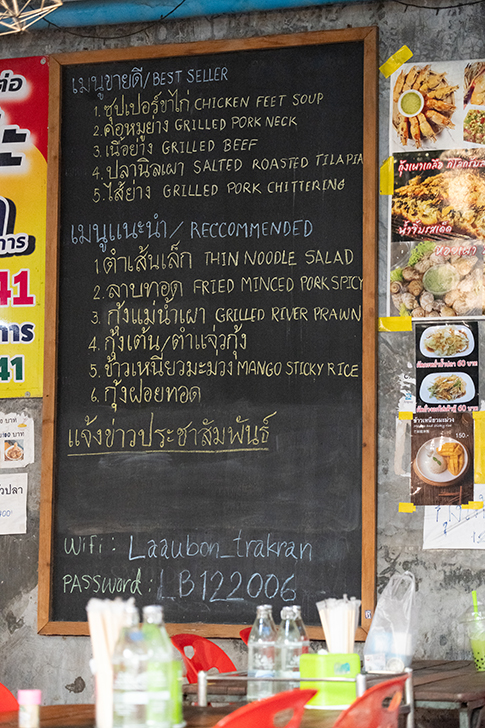 เมนูขายดี/BEST SELLER
1. ซุปเปอร์ขาไก่ CHICKEN FEET SOUP
2. คอหมูย่าง GRILLED PORK NECK
3. เนื้อย่าง GRILLED BEEF
4. ปลานิลเผา SALTED ROASTED TILAPIA
5. ไส้ย่าง GRILLED PORK CHITTERING
เมนูแนะนำ/ RECCOMMENDED
1 ตำเส้นเล็ก THIN NOODLE SALAD
2. ลาบทอด FRIED MINCED PORKSPICY
3. กุ้งแม่น้ำเผา GRILLED RIVER PRAWN
4. กุ้งเต้น/ตำแจ่วกุ้ง
5. ข้าวเหนียวมะม่วง MANGO STICKY RICE
6. กุ้งฝอยทอด
แจ้งข่าวประชาสัมพันธ์
Wifi : Laaubon_trakran
PASSWORD : LB122006
ต่อ
การ
41
การ
41
บาท
กุ้งเผาเกลือ
น้ำจิ้มรสเด็ด
60
60
ข้าวเหนียวมะม่วง
150.-